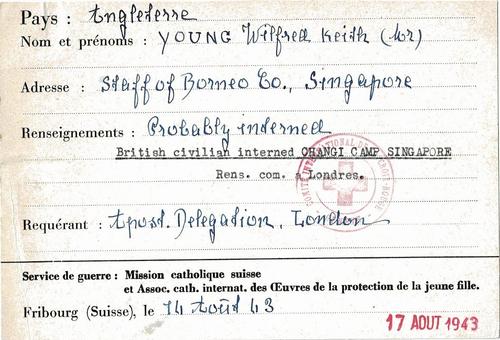 Pays : Angleterre
Nom et prénoms : YOUNG Wilfred Keith (Mr)
Adresse : Staff of Borneo Co., Singapore
Renseignements : Probably interned
British civilian interned CHANGI CAMP SINGAPORE
Rens. com. a Londres.
COMITÉ INTERNATIONAL DE LA CROIX-ROUGE
Requérant : Apost. Delegation, London
Service de guerre : Mission catholique suisse
et Assoc. cath. internat. des Œuvres de la protection de la jeune fille.
Fribourg (Suisse), le 14 Août 43
17 AOUT 1943